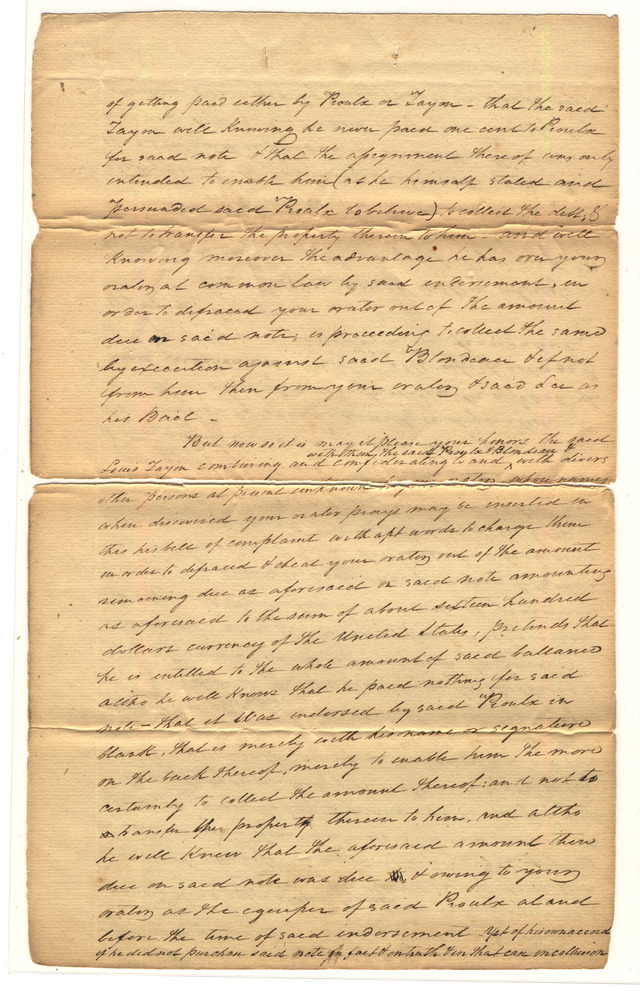 of getting paid either by Proulx or Tayon - that the said
Tayon well knowing he never paid one cent to Proulx
for said note & that the assignment thereof was only
intended to enable him (as he himself stated and
persuaded said Proulx to believe) to collect the debt, &
not to transfer the property therein to him - and well
knowing moreover the advantage he has over your
orator at common law by said indorsement, in
order to defraud your orator out of the amount
due on said note, is proceeding to collect the same
by execution against said Blondeau & if not
from him then from your orator & said Lee as
his Bail -
But now so it is may it please your honors the said
with them the said Proulx & Blondeau &
Louis Tayon combining and confederating to and with divers
other persons at present unknown to your orator whose names
when discovered your orator prays may be inserted in
this his bill of complaint with apt words to charge them
in order to defraud & cheat your orator out of the amount
remaining due as aforesaid on said note amounting
as aforesaid to the sum of about sixteen hundred
dollars currency of the United States; pretends that
he is intitled to the whole amount of said ballance
altho he well knows that he paid nothing for said
note - that it was indorsed by said Proulx in
blank, that is merely with his name or signature
on the back thereof, merely to enable him the more
certainly to collect the amount thereof: and not to
transfer the property therein to him, and altho
he well knew that the aforesaid amount then
due on said note was due & owing to your
orator as the of said Proulx at and
before the time of said indorsement yet of his own accord
if he did not purchase said note in fact & in truth & in that case in collusion